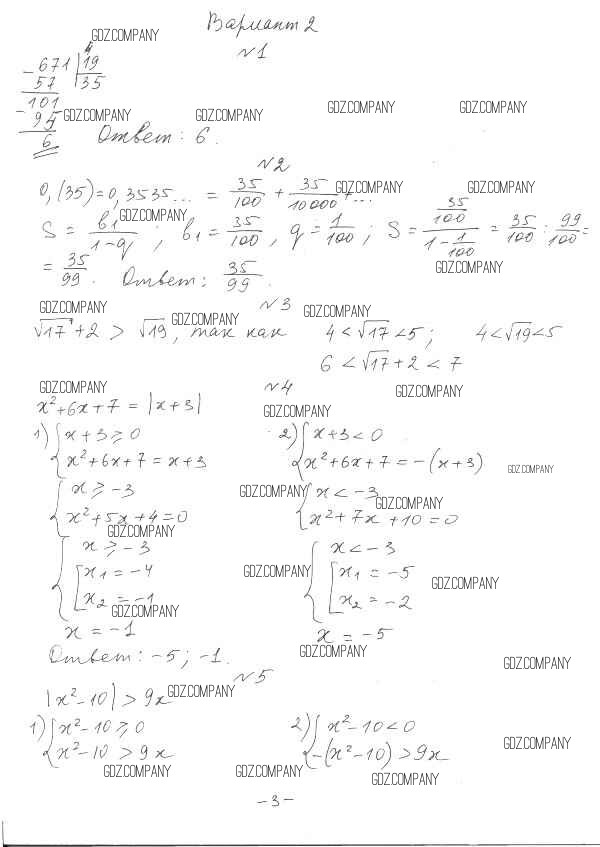 Вариант 2
GDZ.COMPANY
№1
671 | 19
- 57 | 35
101
- 95
6
GDZ.COMPANY GDZ.COMPANY GDZ.COMPANY GDZ.COMPANY
Ответ: 6.
№2
0,(35) = 0,3535... = 35/100 + 35/10000 + ...
GDZ.COMPANY GDZ.COMPANY
S = b₁/(1-q); b₁ = 35/100, q = 1/100; S = (35/100)/(1 - 1/100) = 35/100 : 99/100 =
GDZ.COMPANY
= 35/99. Ответ: 35/99.
GDZ.COMPANY
№3
GDZ.COMPANY GDZ.COMPANY GDZ.COMPANY
√17 + 2 > √19, так как 4 < √17 < 5; 4 < √19 < 5
6 < √17 + 2 < 7
№4
GDZ.COMPANY GDZ.COMPANY
x² + 6x + 7 = |x + 3|
GDZ.COMPANY
1) { x + 3 ≥ 0 2) { x + 3 < 0
{ x² + 6x + 7 = x + 3 { x² + 6x + 7 = -(x + 3)
GDZ.COMPANY
{ x ≥ -3 { x < -3
GDZ.COMPANY GDZ.COMPANY
{ x² + 5x + 4 = 0 { x² + 7x + 10 = 0
GDZ.COMPANY
{ x ≥ -3 { x < -3
[ x₁ = -4 [ x₁ = -5
GDZ.COMPANY GDZ.COMPANY
[ x₂ = -1 [ x₂ = -2
GDZ.COMPANY
x = -1 x = -5
GDZ.COMPANY
Ответ: -5; -1.
GDZ.COMPANY
№5
|x² - 10| > 9x
GDZ.COMPANY
1) { x² - 10 ≥ 0 2) { x² - 10 < 0
{ x² - 10 > 9x { -(x² - 10) > 9x
GDZ.COMPANY
GDZ.COMPANY GDZ.COMPANY GDZ.COMPANY
- 3 -